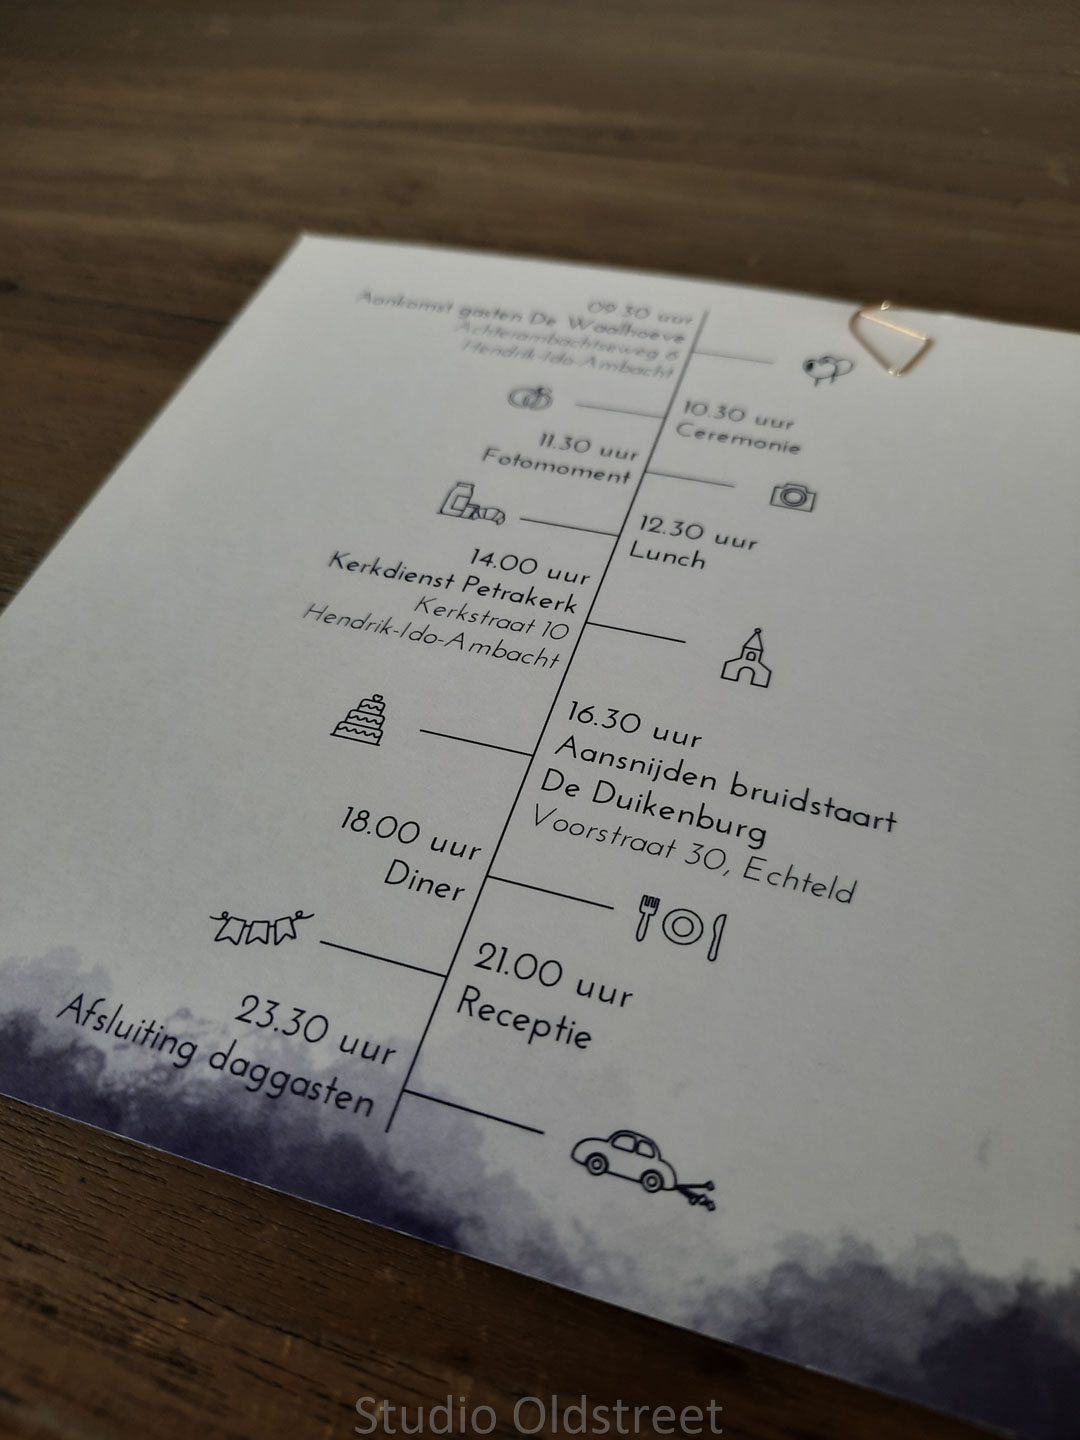 09.30 uur
Aankomst gasten De Waalhoeve
Achterambachtseweg 6
Hendrik-Ido-Ambacht
10.30 uur
Ceremonie
11.30 uur
Fotomoment
12.30 uur
Lunch
14.00 uur
Kerkdienst Petrakerk
Kerkstraat 10
Hendrik-Ido-Ambacht
16.30 uur
Aansnijden bruidstaart
De Duikenburg
Voorstraat 30, Echteld
18.00 uur
Diner
21.00 uur
Receptie
23.30 uur
Afsluiting daggasten
Studio Oldstreet